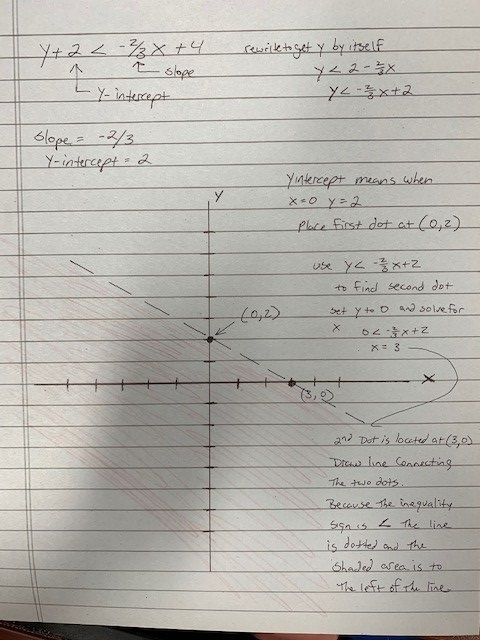 y + 2 < -2/3 x + 4
slope
y-intercept
rewrite to get y by itself
y < 2 - 2/3 x
y < -2/3 x + 2
slope = -2/3
y-intercept = 2
y intercept means when
x=0 y=2
place first dot at (0,2)
use y < -2/3 x + 2
to find second dot
set y to 0 and solve for
x 0 < -2/3 x + 2
x = 3
y
(0,2)
x
(3,0)
2nd Dot is located at (3,0)
Draw line connecting
The two dots.
Because the inequality
sign is < The line
is dotted and the
shaded area is to
The left of the line.